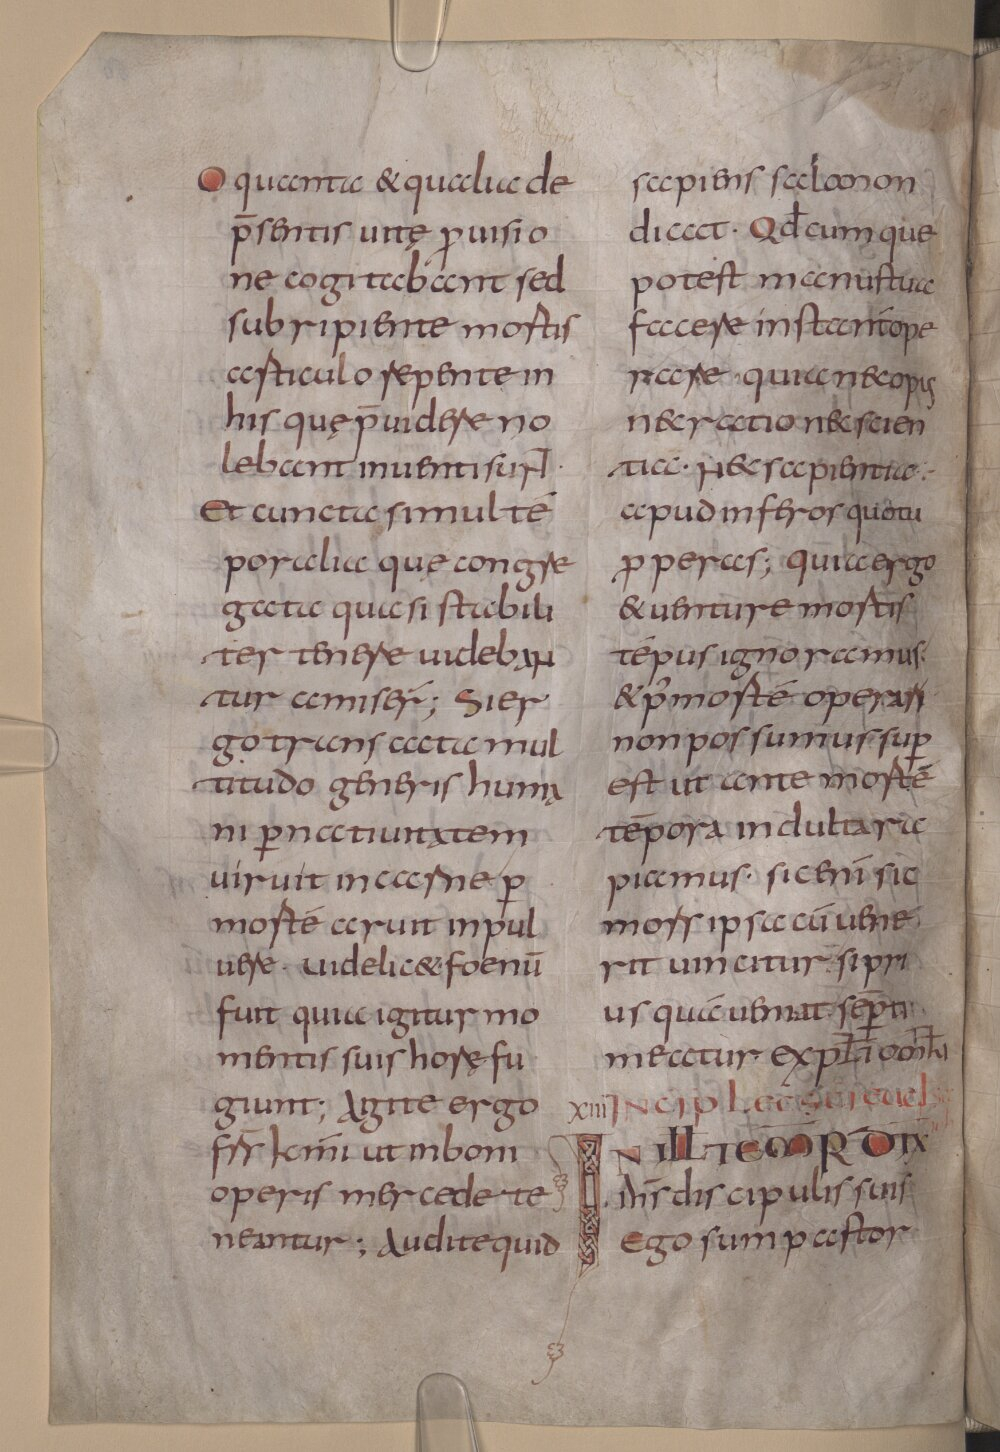 O quanta & qualia de
p̄sentis uitę ꝓuisio
ne cogitabant sed
subripiente mortis
articulo repente in
his quę p̄uidere no
lebant inuenti sunt.
Et cuncta simul tē
poralia que congre
gata quasi stabili
ter tenere uideban
tur amiser̄; Si er
go transacta mul
titudo generis huma
ni ꝑ natiuitatem
uiruit in carne ꝑ
mortē aruit in pul
uere. uidelic& foenū
fuit quia igitur mo
mentis suis horę fu
giunt; Agite ergo
frr̄ kmi ut in boni
operis mercede te
neantur; Audite quid
sapiens salomon
dicat. Qd̄cumque
potest manus tua
facere instant̄ ope
rare quia nec opus
nec ratio nec scien
tia. Nec sapientia
apud inferos quo tu
ꝓperas; Quia ergo
& uenture mortis
tēpus ignoramus.
& p̄ mortē operari
non possumus. suꝑ
est ut ante mortē
tēpora indulta ra
piamus. sic enī sic
mors ipsa cū uene
rit uincitur. si pri
us quā ueniat sēp ti
meatur. expl̄ omł
xiii INCIP Lec
IN ILL TEMR DIX
ih̄s discipulis suis
Ego sum pastor